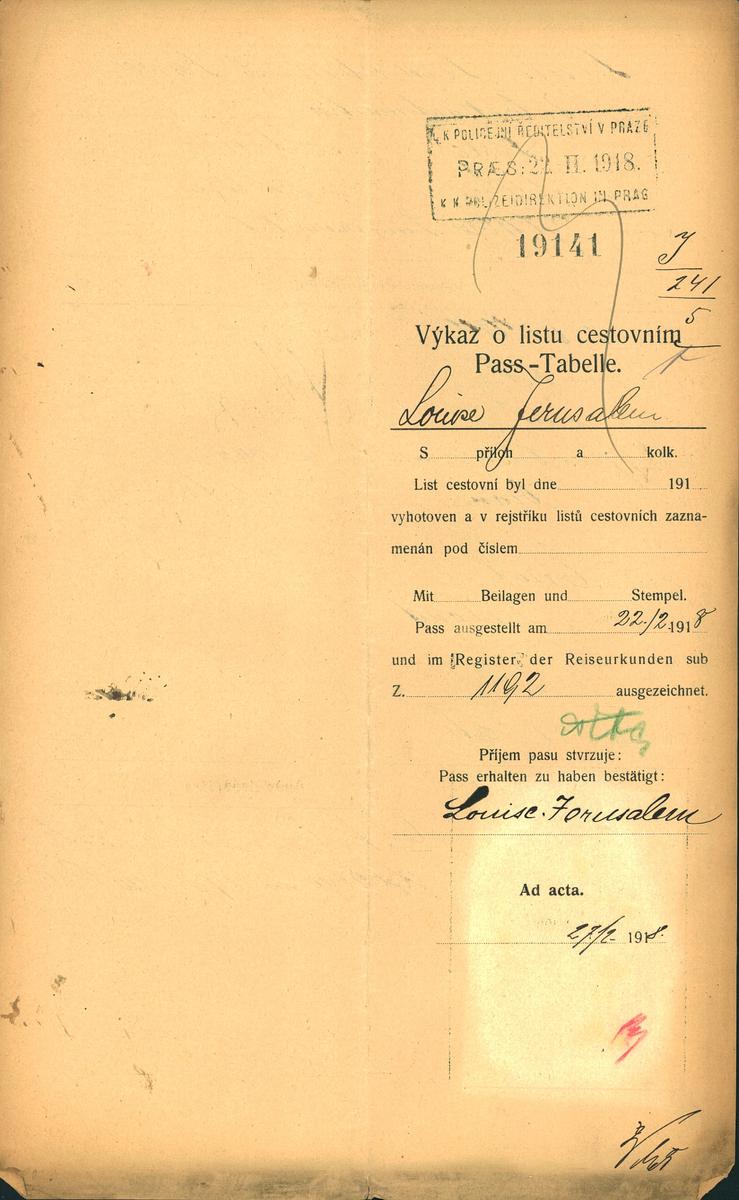 K. K. POLICEJNÍ ŘEDITELSTVÍ V PRAZE
PRÆS: 22. II. 1918.
K. K. POLIZEIDIREKTION IN PRAG
19141
J
241
5
Výkaz o listu cestovním
Pass-Tabelle.
Louise Jerusalem
S příloh a kolk.
List cestovní byl dne 191
vyhotoven a v rejstříku listů cestovních zazna-
menán pod číslem
Mit Beilagen und Stempel.
Pass ausgestellt am 22./2. 1918
und im Register der Reiseurkunden sub
Z. 1192 ausgezeichnet.
Příjem pasu stvrzuje:
Pass erhalten zu haben bestätigt:
Louise Jerusalem
Ad acta.
27/2. 1918.